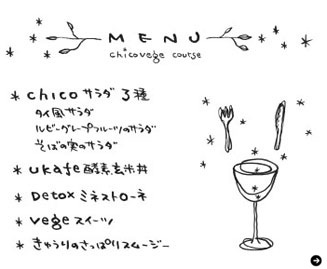 MENU
chicovege course
* chico サラダ 3種
タイ風サラダ
ルビーグレープフルーツのサラダ
そばの実のサラダ
* ukafe 酵素玄米丼
* Detox ミネストローネ
* vege スイーツ
* きゅうりのさっぱりスムージー